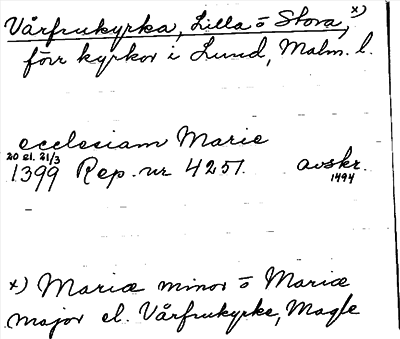 Vårfrukyrka, Lilla o Stora, x)
förr kyrkor i Lund, Malm. l.
ecclesiam Marie
20 el. 21/3
1399 Rep. nr 4251. avskr.
1494
x) Mariæ minor o Mariæ
major el. Vårfrukyrke, Magle